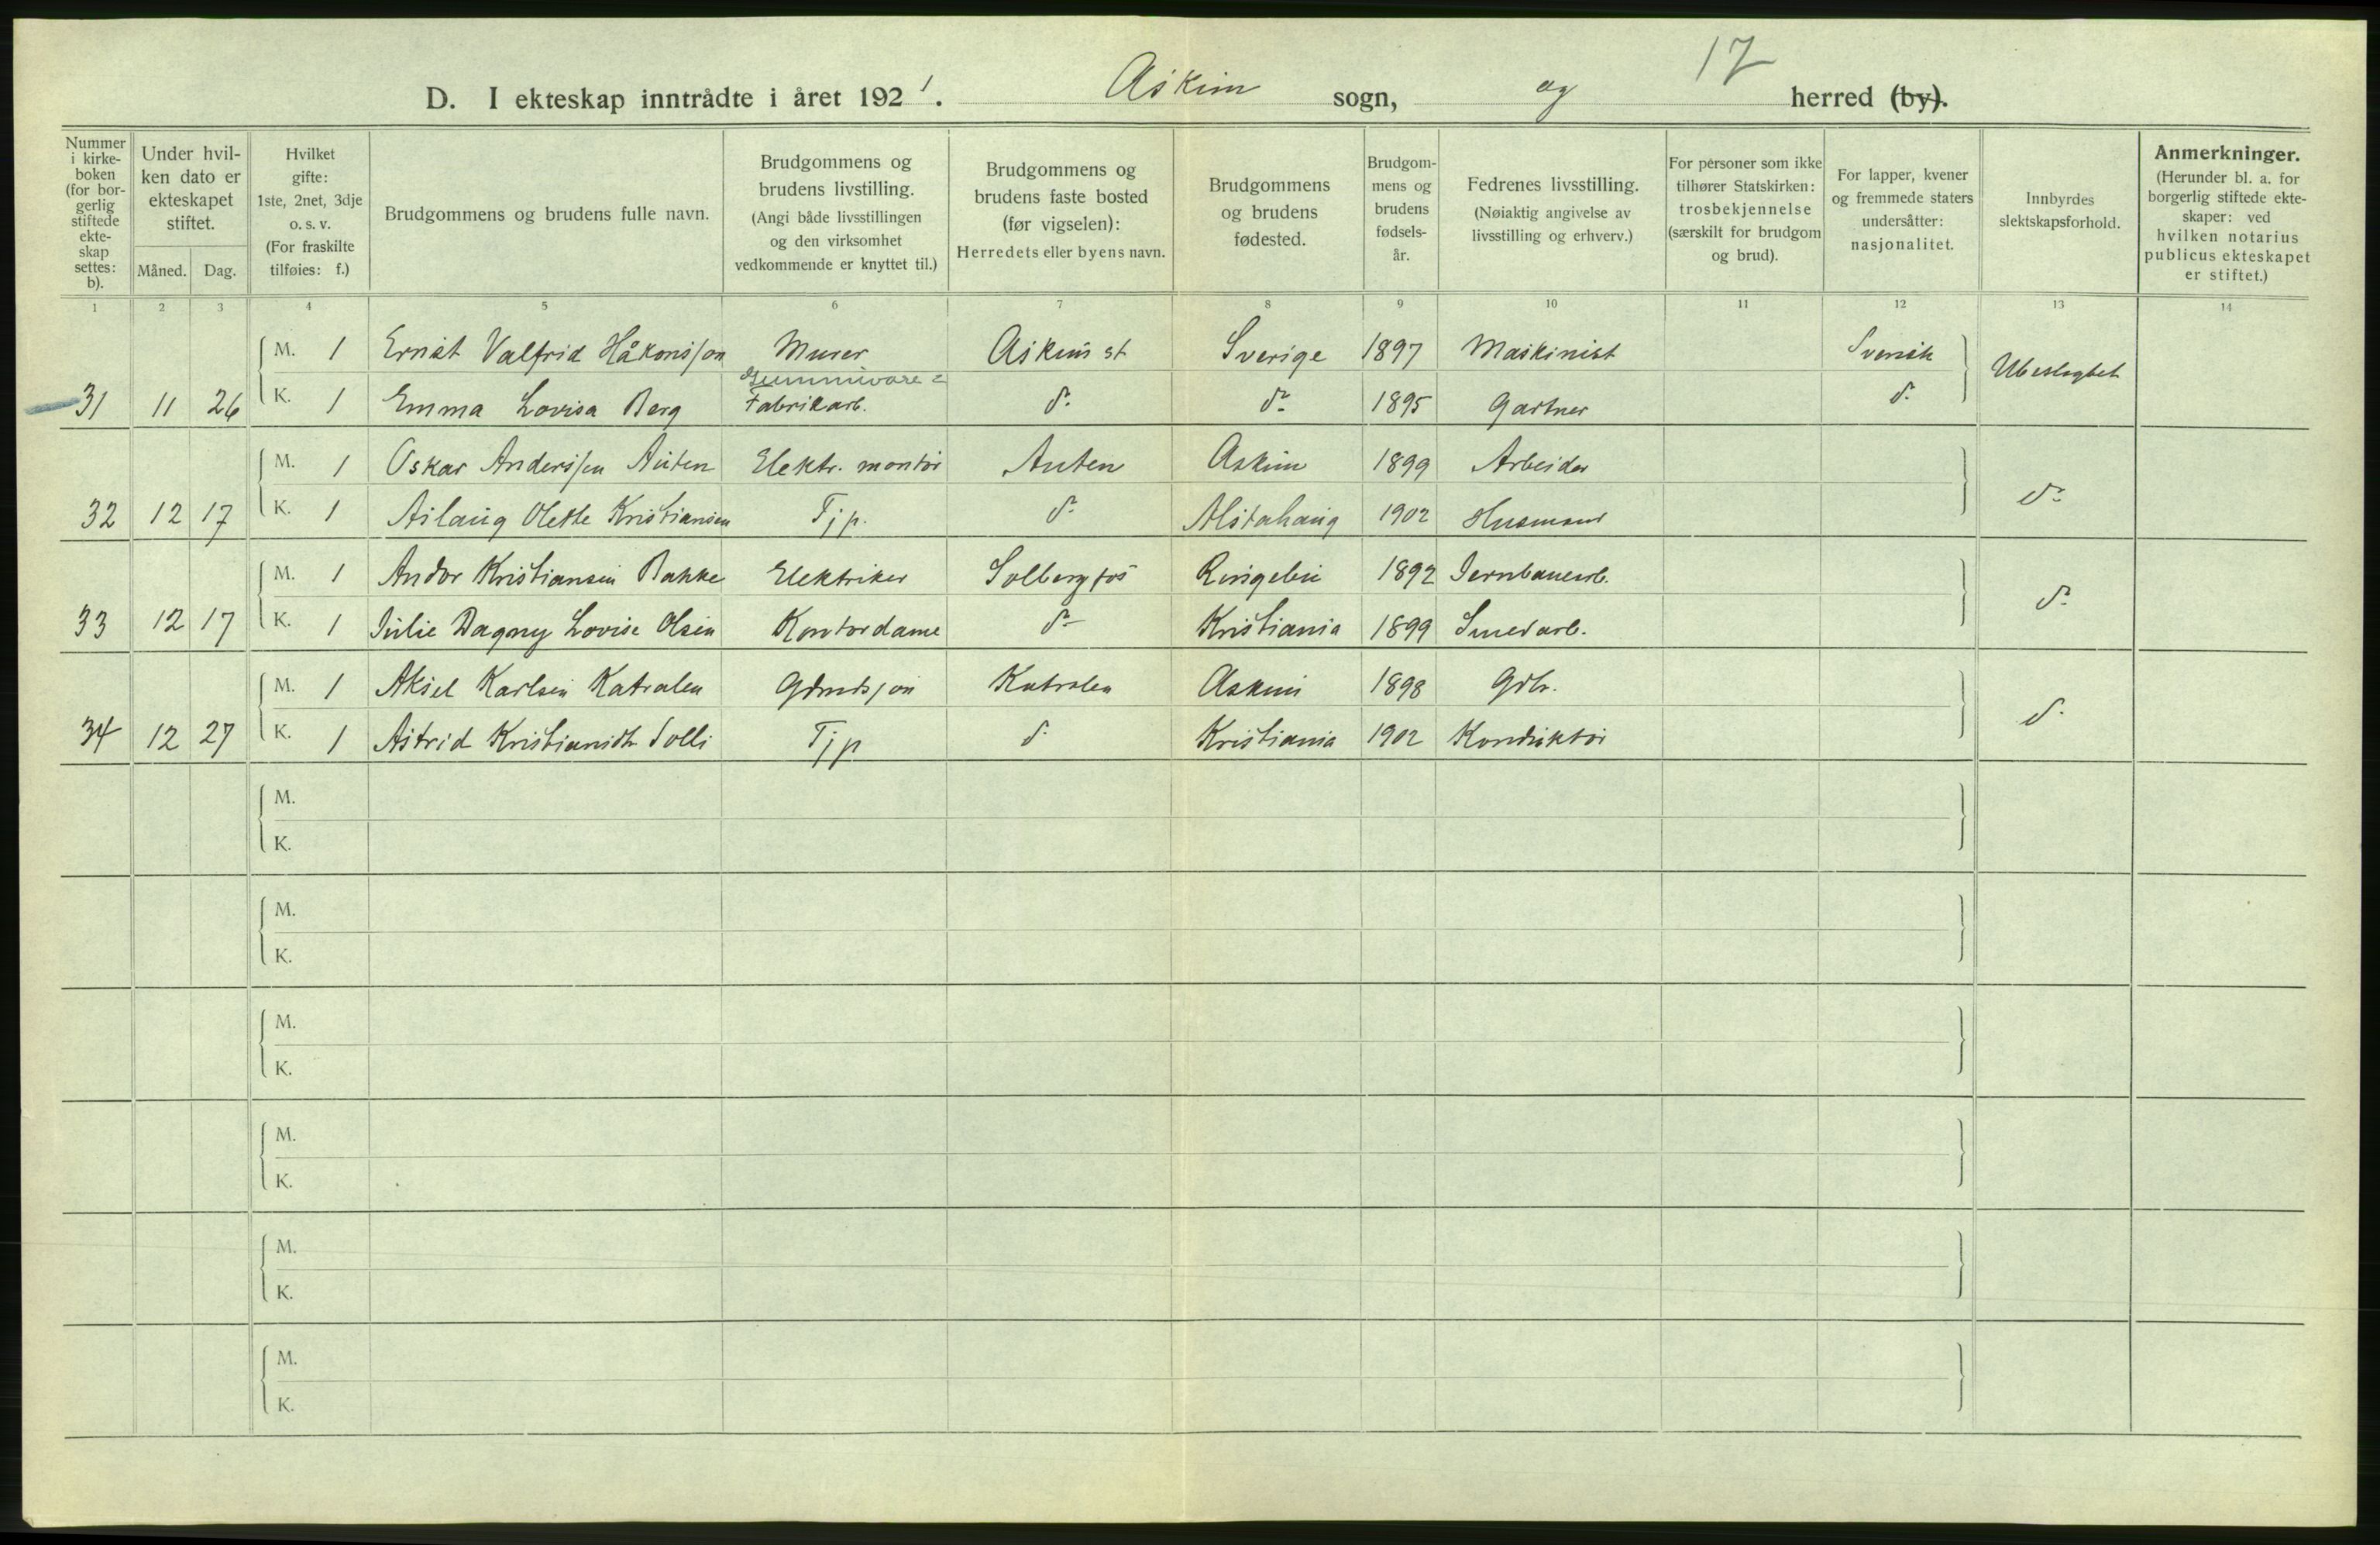 17
D. I ekteskap inntrådte i året 1921. Askim sogn, og herred (by).
Nummer i kirkeboken (for borgerlig stiftede ekteskap settes: b).
Under hvilken dato er ekteskapet stiftet.
Måned. Dag.
Hvilket gifte: 1ste, 2net, 3dje o. s. v. (For fraskilte tilføies: f.)
Brudgommens og brudens fulle navn.
Brudgommens og brudens livstilling. (Angi både livsstillingen og den virksomhet vedkommende er knyttet til.)
Brudgommens og brudens faste bosted (før vigselen): Herredets eller byens navn.
Brudgommens og brudens fødested.
Brudgommens og brudens fødselsår.
Fedrenes livsstilling. (Nøiaktig angivelse av livsstilling og erhverv.)
For personer som ikke tilhører Statskirken: trosbekjennelse (særskilt for brudgom og brud).
For lapper, kvener og fremmede staters undersåtter: nasjonalitet.
Innbyrdes slektskapsforhold.
Anmerkninger. (Herunder bl. a. for borgerlig stiftede ekteskaper: ved hvilken notarius publicus ekteskapet er stiftet.)
1 2 3 4 5 6 7 8 9 10 11 12 13 14
M. 1 Ernst Valfrid Håkonsson Murer Askim st Sverige 1897 Maskinist Svensk Ubeslegtet
Gummivare-
31 11 26 K. 1 Emma Lovisa Berg Fabrikarb. do do 1895 Gartner do
M. 1 Oskar Anderssen Auten Elektr. montør Auten Askim 1899 Arbeider
32 12 17 K. 1 Aslaug Olette Kristiansen Tjp. do Alstahaug 1902 Husmand do
M. 1 Andor Kristiansen Bakke Elektriker Solbergfos Ringebu 1892 Jernbanearb.
33 12 17 K. 1 Julie Dagny Lovise Olsen Kontordame do Kristiania 1899 Smedarb. do
M. 1 Aksel Karlsen Katralen Gdmdssøn Katralen Askim 1898 Gdbr.
34 12 27 K. 1 Astrid Kristiansdtr Solli Tjp do Kristiania 1902 Konduktør do
M.
K.
M.
K.
M.
K.
M.
K.
M.
K.
M.
K.